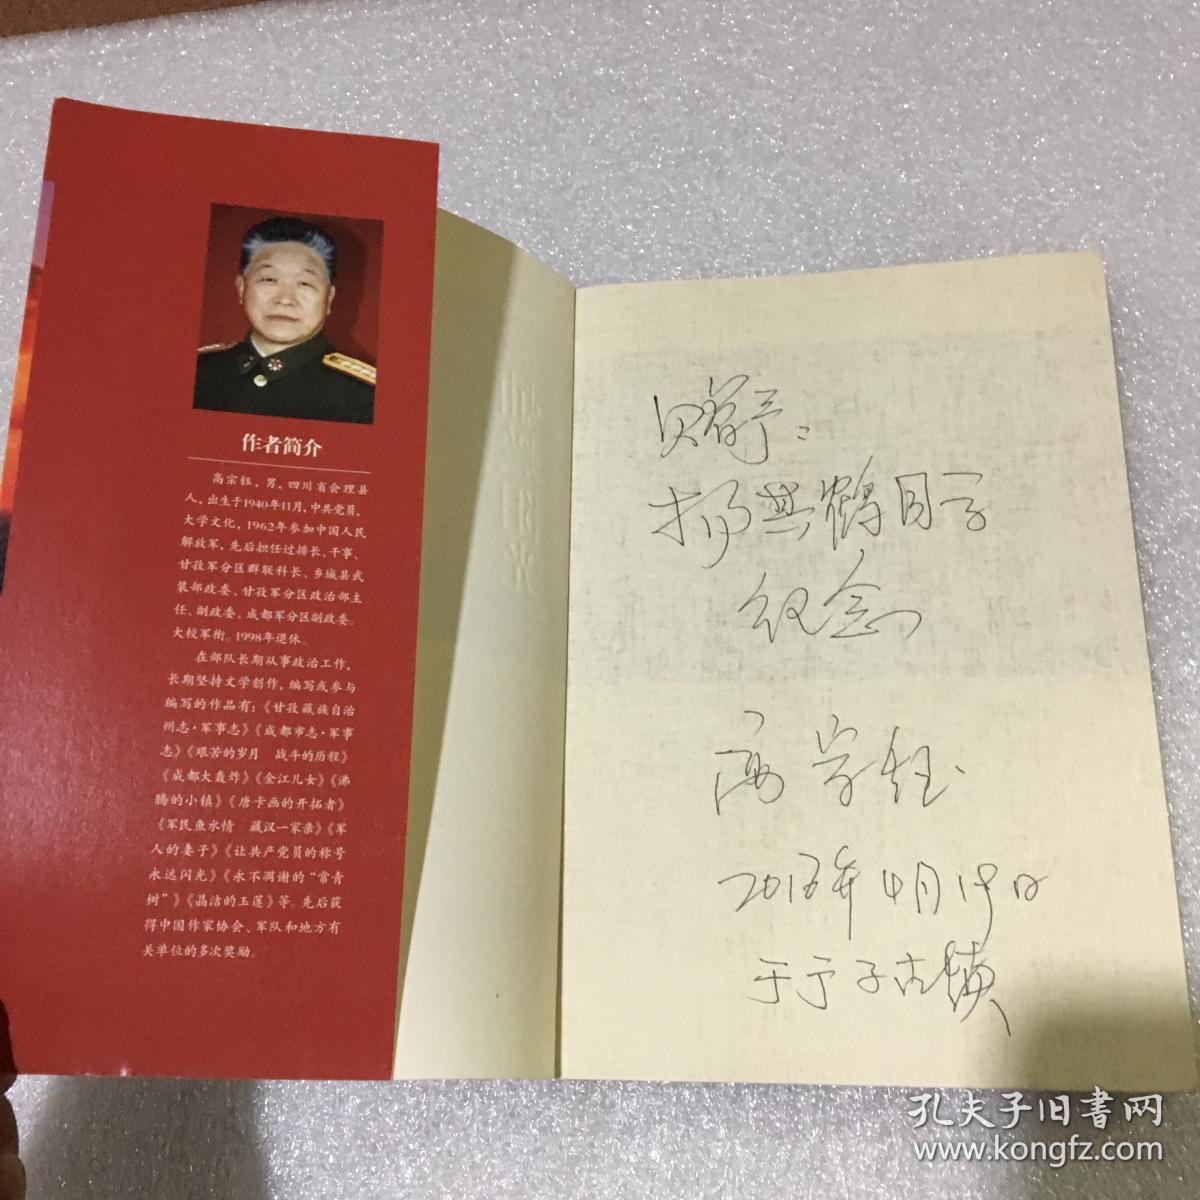 作者简介
高宗钰，男，四川省会理县
人，出生于1940年11月，中共党员，
大学文化，1962年参加中国人民
解放军，先后担任过排长、干事、
甘孜军分区群联科长、乡城县武
装部政委、甘孜军分区政治部主
任、副政委、成都军分区副政委。
大校军衔。1998年退休。
在部队长期从事政治工作，
长期坚持文学创作，编写或参与
编写的作品有：《甘孜藏族自治
州志·军事志》《成都市志·军事
志》《艰苦的岁月　战斗的历程》
《成都大轰炸》《金江儿女》《沸
腾的小镇》《唐卡画的开拓者》
《军民鱼水情　藏汉一家亲》《军
人的妻子》《让共产党员的称号
永远闪光》《永不凋谢的“常青
树”》《晶洁的玉莲》等。先后获
得中国作家协会、军队和地方有
关单位的多次奖励。
赠予：
杨其鹤同学
纪念
高宗钰
年4月19日
于 古镇
孔夫子旧書网
www.kongfz.com